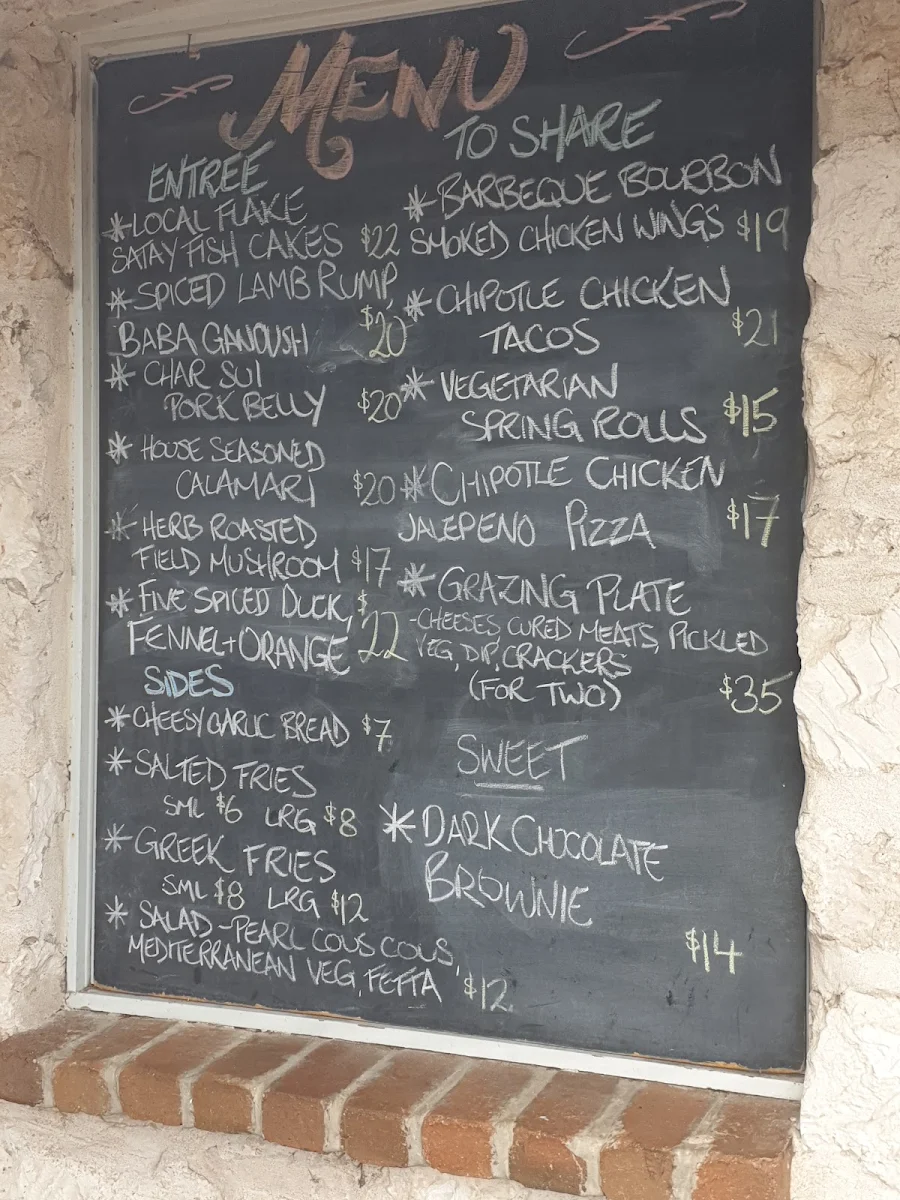 MENU
ENTREÉ
*LOCAL FLAKE
SATAY FISH CAKES $22
*SPICED LAMB RUMP,
BABA GANOUSH $20
*CHAR SUI
PORK BELLY $20
*HOUSE SEASONED
CALAMARI $20
*HERB ROASTED
FIELD MUSHROOM $17
*FIVE SPICED DUCK,
FENNEL+ORANGE $22
SIDES
*CHEESY GARLIC BREAD $7
*SALTED FRIES
SML $6 LRG $8
*GREEK FRIES
SML $8 LRG $12
*SALAD -PEARL COUS COUS,
MEDITERRANEAN VEG, FETTA $12
TO SHARE
*BARBEQUE BOURBON
SMOKED CHICKEN WINGS $19
*CHIPOTLE CHICKEN
TACOS $21
*VEGETARIAN
SPRING ROLLS $15
*CHIPOTLE CHICKEN
JALEPENO PIZZA $17
*GRAZING PLATE
-CHEESES, CURED MEATS, PICKLED
VEG, DIP, CRACKERS
(FOR TWO) $35
SWEET
*DARK CHOCOLATE
BROWNIE
$14